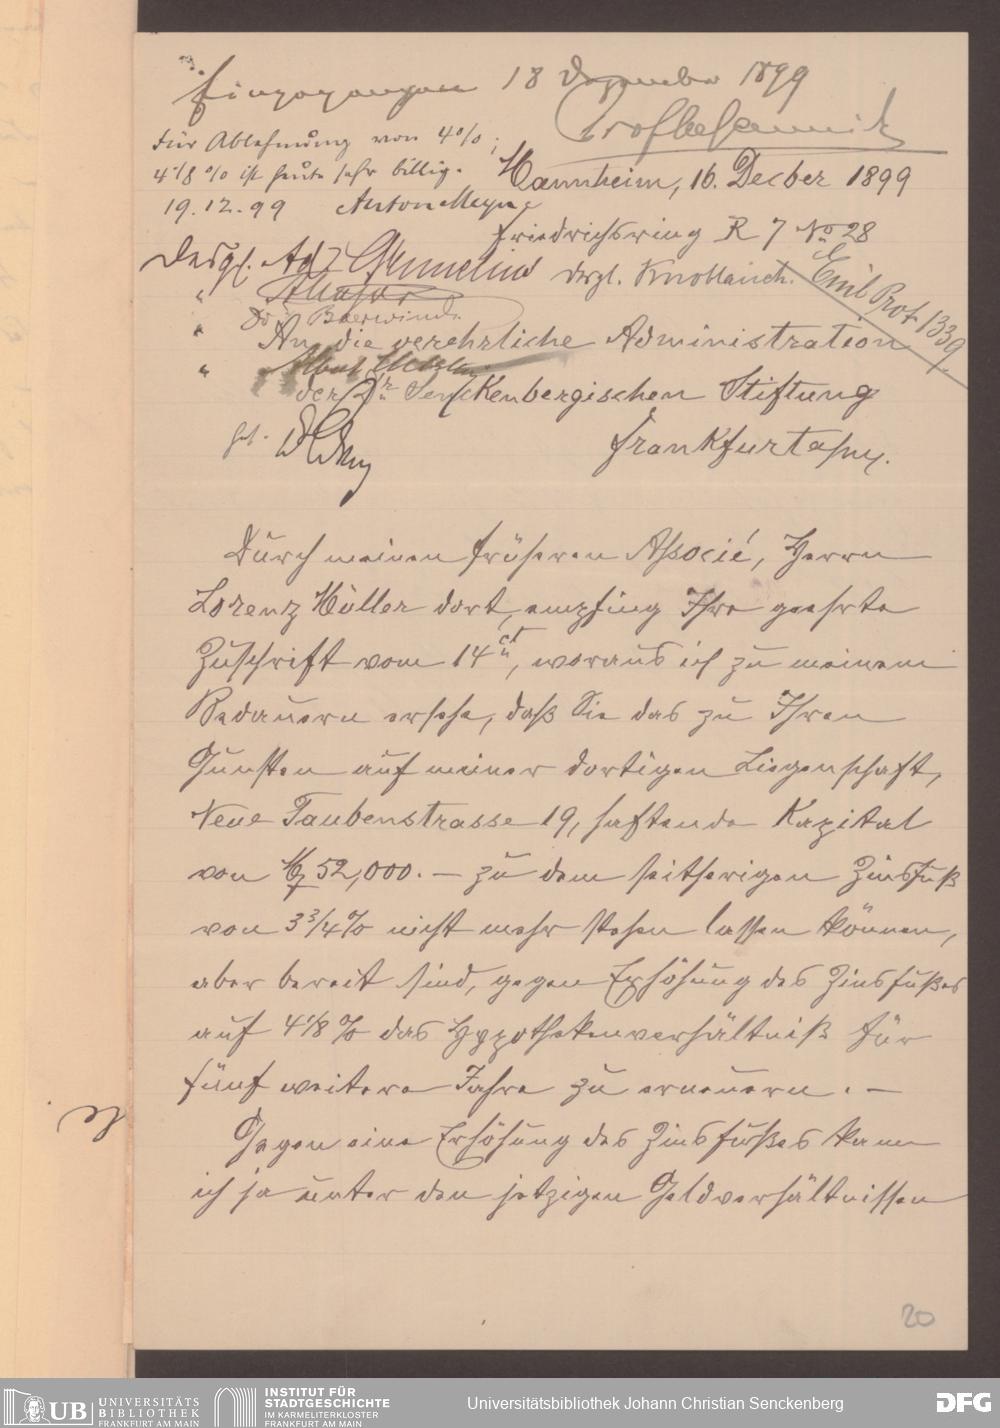 Eingegangen 18 Dezember 1899
Für Ablehnung von 4%;
4 1/8 % ist heute sehr billig.
19.12.99 Anton Meyer
Mannheim, 16. Decber 1899
Friedrichsring R 7 No 28
Desgl. Ad. Gmmelin desgl. Knoblauch.
Emil Prot. 1339.
" 
" Dr. Baerwind.
An die verehrliche Administration
"
der Dr. Senckenbergischen Stiftung
ges.
Frankfurt a/M.
Durch meinen früheren Associé, Herrn
Lorenz Müller dort, empfing Ihre geehrte
Zuschrift vom 14 ct, woraus ich zu meinem
Bedauern ersehe, daß Sie das zu Ihren
Gunsten auf meiner dortigen Liegenschaft,
Neue Taubenstrasse 19, haftende Kapital
von M 52,000. – zu dem seitherigen Zinsfuß
von 3 3/4 % nicht mehr stehen lassen können,
aber bereit sind, gegen Erhöhung des Zinsfußes
auf 4 1/8 % das Hypothekenverhältniß für
fünf weitere Jahre zu erneuern. –
Gegen eine Erhöhung des Zinsfußes kann
ich ja unter den jetzigen Geldverhältnissen
20
UB UNIVERSITÄTS
BIBLIOTHEK
FRANKFURT AM MAIN
INSTITUT FÜR
STADTGESCHICHTE
IM KARMELITERKLOSTER
FRANKFURT AM MAIN
Universitätsbibliothek Johann Christian Senckenberg
DFG